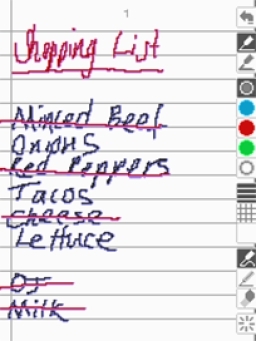 1
Shopping List
Minced Beef
Onions
Red Peppers
Tacos
Cheese
Lettuce
OJ
Milk